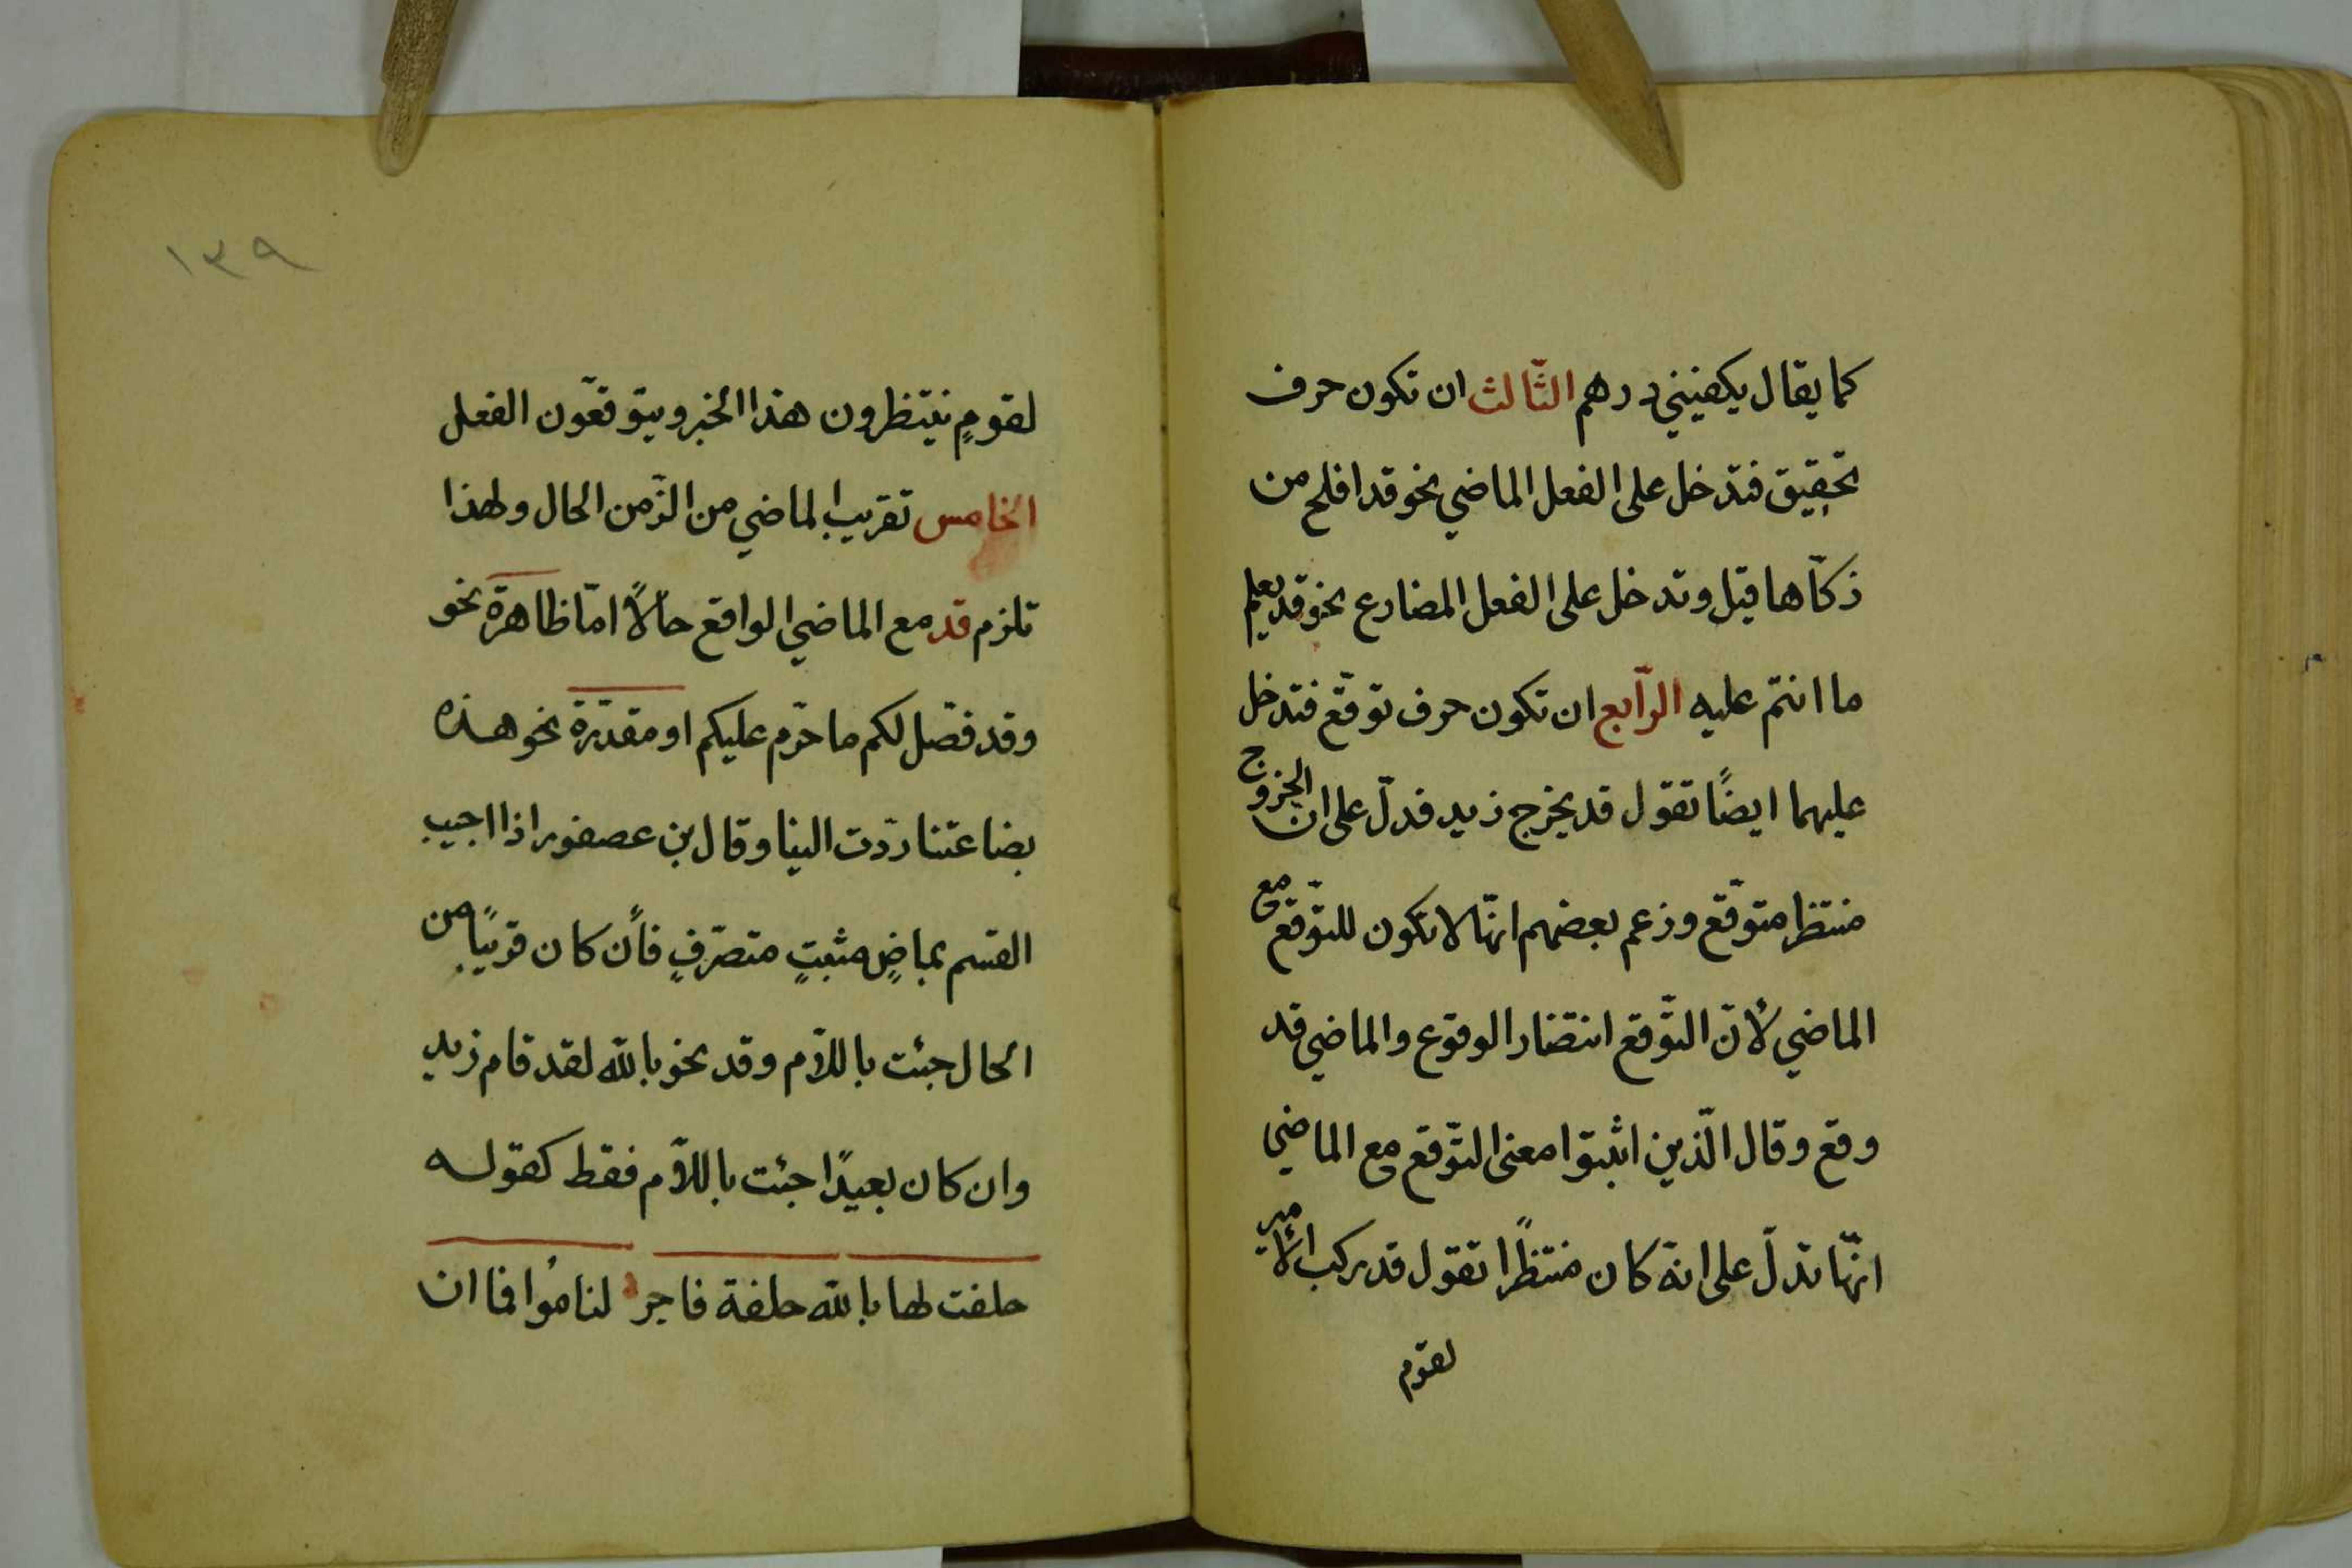 كما يقال يكفينى درهم الثّالث ان تكون حرف
تحقيق فتدخل على الفعل الماضي نحو قد افلح من
زكّاها قيل وتدخل على الفعل المضارع نحو قد يعلم
ما انتم عليه الرّابع ان تكون حرف توقّع فتدخل
عليهما ايضًا تقول قد يخرج زيد فدلّ على ان الخروج
منتظرا متوقّع وزعم بعضهم انّها لا تكون للتوّقع مع
الماضي لأنّ التّوقع انتضار الوقوع والماضي قد
وقع وقال الّذين اثبتوا معنى التّوقع مع الماضي
انّها تدلّ على انه كان منتظرًا تقول قد ركب الأمير
لقوم
١٣٩
لقومٍ ينتظرون هذا الخبر ويتوقّعون الفعل
الخامس تقريب الماضي من الزّمن الحال ولهذا
تلزم قد مع الماضي الواقع حالاً امّا ظاهرة نحو
وقد فصّل لكم ما حرّم عليكم او مقدّرة نحو هذه
بضاعتنا ردّت الينا وقال بن عصفور اذا اجيب
القسم بماضٍ مثبتٍ متصرّفٍ فأن كان قريبًا من
الحال جئت باللاّم وقد نحو بالله لقد قام زيد
وان كان بعيدًا جئت باللاّم فقط كقوله
حلفت لها بالله حلفة فاجر لنامُوا فما ان